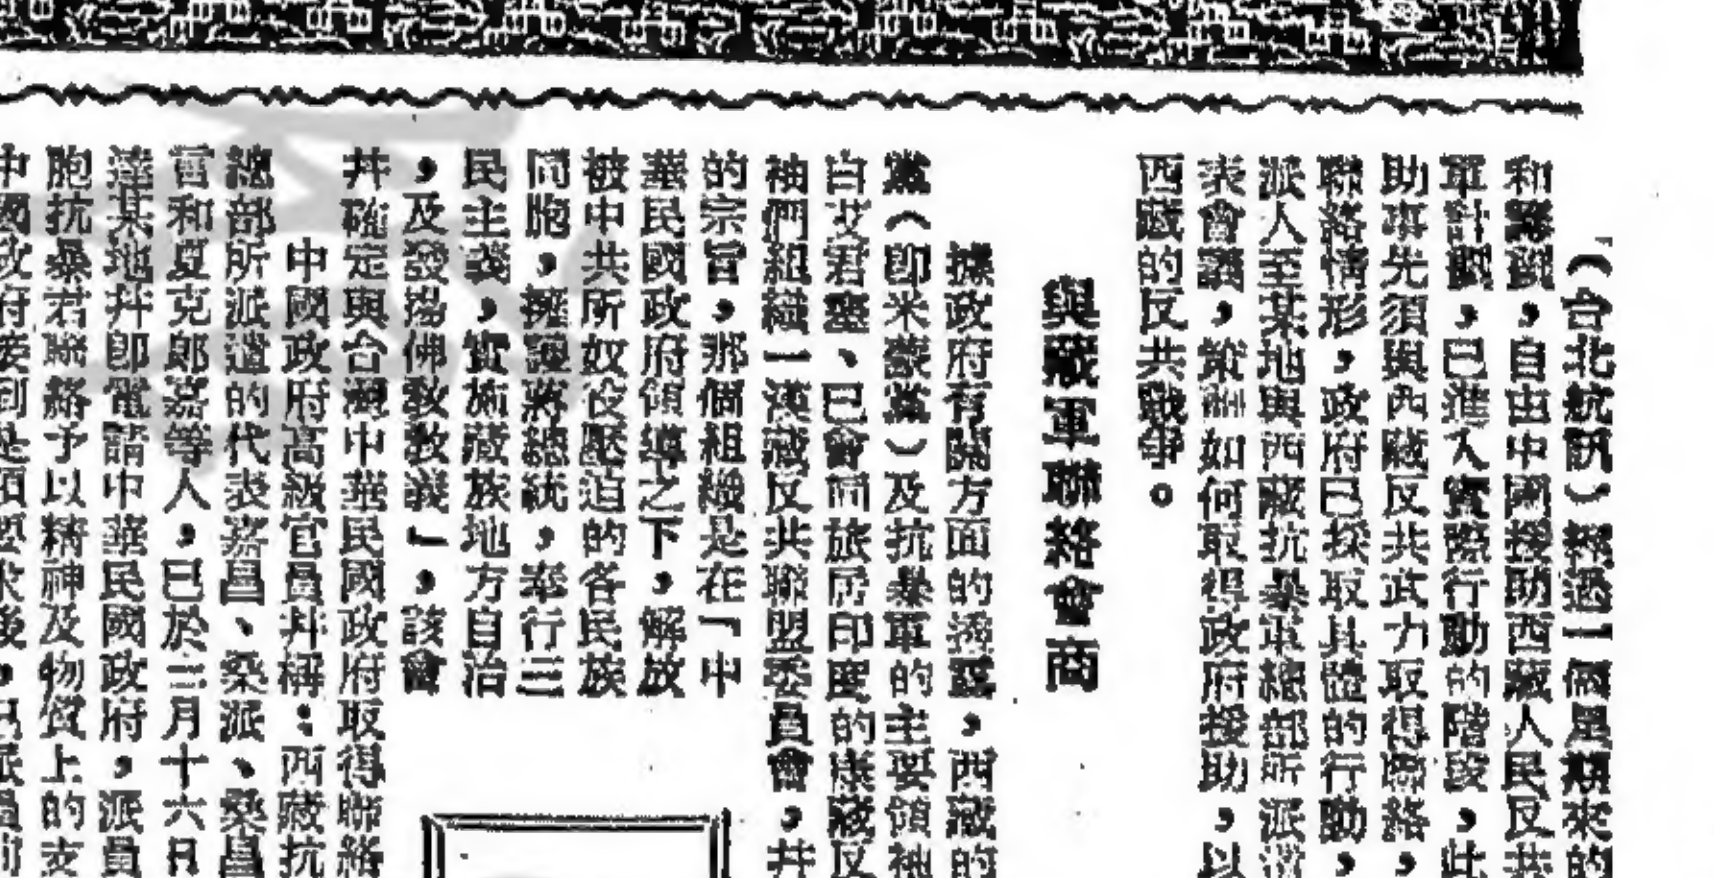 （台北航訊）經過一個星期來的
和緩觀，自由中國援助西藏人民反共
軍計劃，已進入實際行動的階段，此
助事先須與西藏反共武力取得聯絡，
聯絡情形，政府已採取具體的行動，
派人至某地與西藏抗暴軍總部所派
表會議，策劃如何取得政府援助，以
西藏的反共戰爭。
與藏軍聯絡會商
據政府有關方面的透露，西藏的
黨（即米蒙黨）及抗暴軍的主要領袖
白艾君塞、已會同旅居印度的康藏反
袖們組織一漢藏反共聯盟委員會，幷
的宗旨，那個組織是在「中
華民國政府領導之下，解放
被中共所奴役壓迫的各民族
同胞，擁護蔣總統，奉行三
民主義，實施藏族地方自治
，及發揚佛教教義」，該會
幷確定與台灣中華民國政府取得聯絡
中國政府高級官員幷稱：西藏抗
總部所派遣的代表嘉昌、桑派、桑昌
和夏克郎嘉等人，已於三月十六日
達某地幷即電請中華民國政府，派員
胞抗暴君聯絡予以精神及物質上的支
中國政府接到是項要求後，已派員前